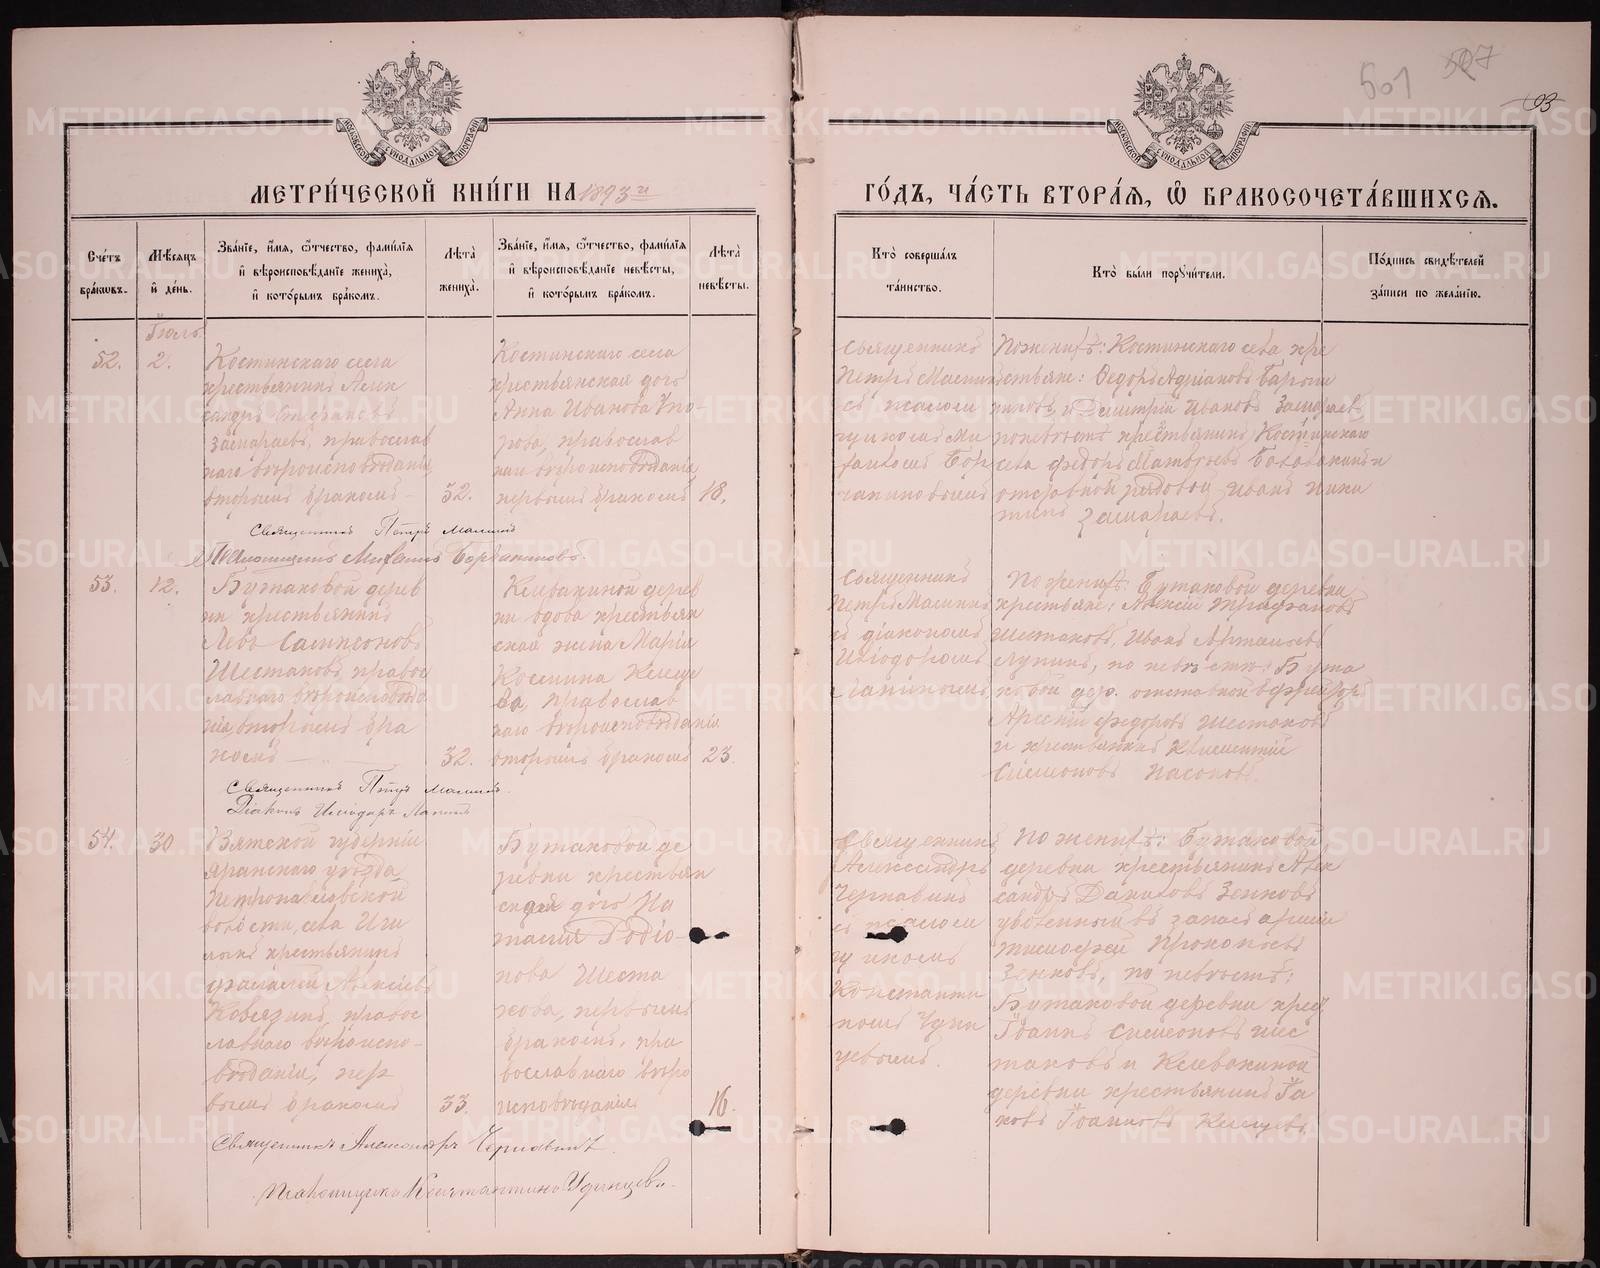 501 507
93
МОСКОВСКОЙ СѴНОДАЛЬНОЙ ТИПОГРАФІИ
МОСКОВСКОЙ СѴНОДАЛЬНОЙ ТИПОГРАФІИ
МЕТРИ́ЧЕСКОЙ КНИ́ГИ НА 1893й
ГО́ДЪ, ЧА́СТЬ ВТОРА́Я, Ѽ БРАКОСОЧЕТА́ВШИХСЯ.
Сче́тъ
бра́кωвъ.
Мѣ́сяцъ
и҆ де́нь.
Зва́нїе, и҆́мя, ѻ҆́тчество, фами́лїя
и҆ вѣроисповѣ́данїе жениха̀,
и҆ кото́рымъ бра́комъ.
Лѣ́та
жениха̀.
Зва́нїе, и҆́мя, ѻ҆́тчество, фами́лїя
и҆ вѣроисповѣ́данїе невѣ́сты,
и҆ кото́рымъ бра́комъ.
Лѣ́та
невѣ́сты.
Кто̀ соверша́лъ
та́инство.
Кто̀ бы́ли поручи́тели.
По́дпись свидѣ́телей
за́писи по жела́нїю.
Іюль
52.
2.
Костинскаго села
крестьянинъ Алек
сандръ Стефановъ
Замараевъ, православ
наго вѣроисповѣданія,
вторымъ бракомъ
32.
Костинскаго села
крестьянская дочь
Анна Иванова
православ
наго вѣроисповѣданія
первымъ бракомъ
18.
Священникъ
Петръ Малинъ
съ псалом
щикомъ Ми
хаиломъ
По женихѣ: Костинскаго села кре
стьяне: Ѳедоръ Адріановъ
и Димитрій Ивановъ Замараевъ,
по невѣстѣ крестьянинъ Костинскаго
села Ѳедоръ Матвѣевъ
отставной рядовой Иванъ Ники
тинъ Замараевъ.
Священникъ Петръ Малинъ
Псаломщикъ Михаилъ
53.
12.
Бутаковой дерев
ни крестьянинъ
Левъ Сампсоновъ
Шестаковъ, правос
лавнаго вѣроисповѣда
нія, вторымъ бра
комъ
32.
Клевакиной дерев
ни вдова крестьян
ская жена Марія
Космина Клеще
ва, православ
наго вѣроисповѣданія
вторымъ бракомъ
23.
Священникъ
Петръ Малинъ
съ діакономъ
Иліодоромъ
По женихѣ: Бутаковой деревни
крестьяне: Алексій Трифановъ
Шестаковъ, Иванъ Артамоевъ
Лупинъ, по невѣстѣ: Бута
ковой дер. отставной ефрейторъ
Арсеній Ѳедоровъ Шестаковъ
и крестьянинъ Климентій
Симеоновъ
Священникъ Петръ Малинъ.
Діаконъ Иліодоръ
54.
30
Вятской губерніи
Яранскаго уѣзда,
Петропавловской
волости, села
крестьянинъ
Алексіевъ
правос
лавнаго вѣроиспо-
вѣданія, пер
вымъ бракомъ
33.
Бутаковой де
ревни крестьян
ская дочь На
талія Родіо-
нова Шеста
кова, первымъ
бракомъ, пра
вославнаго вѣро
исповѣданія
16.
Священникъ
Александръ
Чернавинъ
съ псалом
щикомъ
Константи
номъ Уди
нцевымъ.
По женихѣ: Бутаковой
деревни крестьянинъ Алек
сандръ Даниловъ Зенковъ
уволенный въ запасъ арміи
Тимофей Прокопьевъ
Зенковъ, по невѣстѣ:
Бутаковой деревни крест.
Іоаннъ Симеоновъ Шес
таковъ и Клевакиной
деревни крестьянинъ Іа
ковъ Іоанновъ Клещевъ
Священникъ Александръ Чернавинъ.
Псаломщикъ Константинъ Удинцевъ.
METRIKI.GASO-URAL.RU